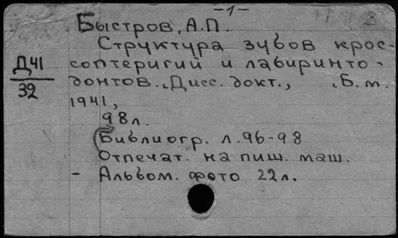 -1-
Быстров, А.П.
Структура зубов крос-
соптеригий и лабиринто-
донтов., Дисс. докт., , Б. м.
Д41
32
1941,
98 л.
Библиогр. л. 96-98
Отпечат. на пиш. маш.
- Альбом. фото 22 л.